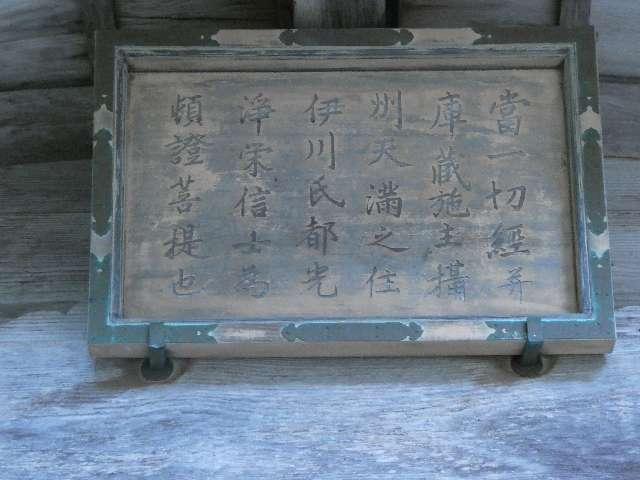 當一切經并
庫藏施主攝
州天滿之住
伊川氏都光
淨栄信士為
頓證菩提也